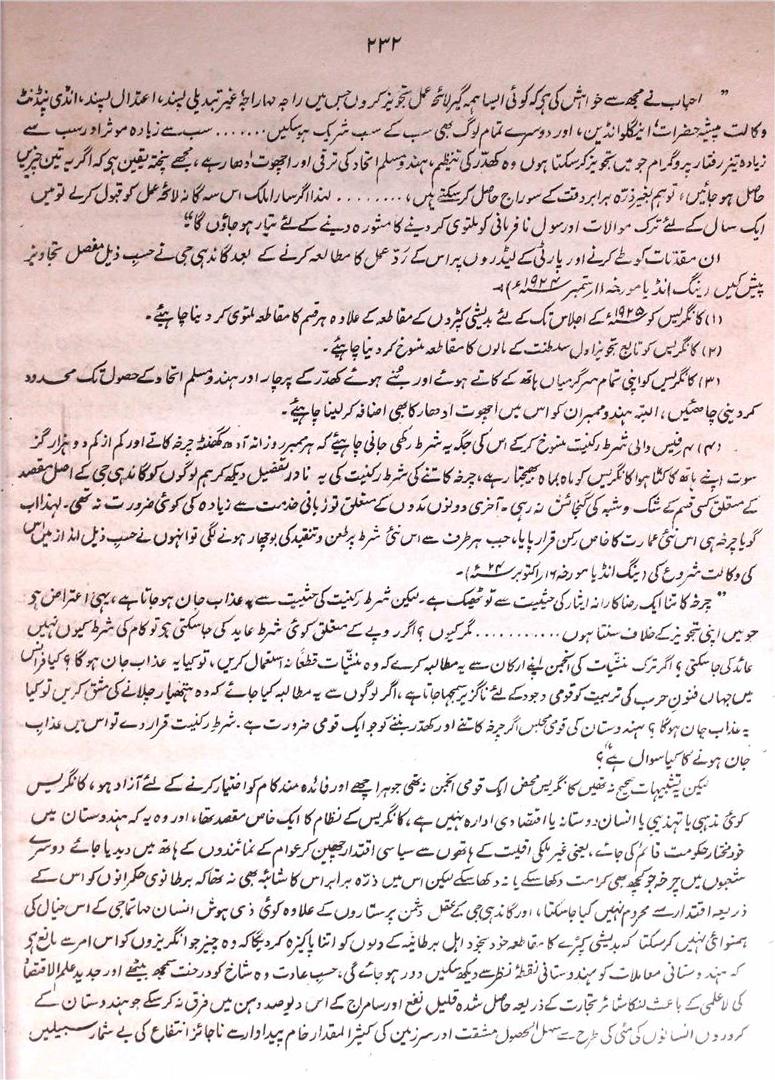 ۲۳۲
" احباب نے مجھ سے خواہش کی ہے کہ کوئی ایسا ہمہ گیر لائحہ عمل تجویز کروں جس میں راجہ مہاراجہ، غیر تبدیلی پسند، اعتدال پسند، انڈی پنڈنٹ
وکالت پیشہ حضرات، اینگلو انڈین، اور دوسرے تمام لوگ بھی سب کے سب شریک ہو سکیں....... سب سے زیادہ موثر اور سب سے
زیادہ تیز رفتار پروگرام جو میں تجویز کر سکتا ہوں وہ کھدّر کی تنظیم، ہندو مسلم اتحاد کی ترقی اور اچھوت اُدھار ہے، مجھے پختہ یقین ہی کہ اگر یہ تین چیزیں
حاصل ہو جائیں، تو ہم بغیر ذرّہ برابر دقت کے سوراج حاصل کر سکتے ہیں، ........ لہٰذا اگر سارا ملک اس سہ گانہ لائحہ عمل کو قبول کر لے تو میں
ایک سال کے لئے ترک موالات اور سول نافرمانی کو ملتوی کر دینے کا مشورہ دینے کے لئے تیار ہو جاؤں گا"
ان مقدّمات کو طے کرنے اور پارٹی کے لیڈروں پر اس کے ردّ عمل کا مطالعہ کرنے کے بعد گاندہی جی نے حسب ذیل مفصل تجاویز
پیش کیں (ینگ انڈیا مورخہ ۱۱ ستمبر ۱۹۲۴ء)۔
(۱) کانگریس کو ۱۹۲۵ء کے اجلاس تک کے لئے بدیشی کپڑوں کے مقاطعہ کے علاوہ ہر قسم کا مقاطعہ ملتوی کر دینا چاہئیے۔
(۲) کانگریس کو تابع تجویز اول سلطنت کے مالوں کا مقاطعہ منسوخ کر دینا چاہئیے۔
(۳) کانگریس کو اپنی تمام سرگرمیاں ہاتھ کے کاتے ہوئے اور بُنے ہوئے کھدّر کے پرچار اور ہندو مسلم اتحاد کے حصول تک محدود
کر دینی چاہئیں، البتہ ہندو ممبران کو اس میں اچھوت ادھار کا بھی اضافہ کر لینا چاہئیے۔
(۴) ۴ر فیس والی شرط رکنیت منسوخ کر کے اس کی جگہ یہ شرط رکھی جانی چاہئیے کہ ہر ممبر روزانہ آدھ گھنٹہ چرخہ کاتے اور کم از کم دو ہزار گز
سوت اپنے ہاتھ کا کتا ہوا کانگریس کو ماہ بماہ بھیجتا رہے، چرخہ کاتنے کی شرط رکنیت کی یہ نادر تفصیل دیکھ کر ہم لوگوں کو گاندہی جی کے اصل مقصد
کے متعلق کسی قسم کے شک و شبہ کی گنجائش نہ رہی۔ آخری دونوں مدوں کے متعلق تو زبانی خدمت سے زیادہ کی کوئی ضرورت نہ تھی۔ لہٰذا اب
گویا چرخہ ہی اس نئی عمارت کا خاص رکن قرار پایا، جب ہر طرف سے اس نئی شرط پر طعن و تنقید کی بوچھار ہونے لگی تو انہوں نے حسب ذیل انداز میں اس
کی وکالت شروع کی (ینگ انڈیا مورخہ ۱۶ اکتوبر ۲۴ء)۔
" چرخہ کاتنا ایک رضاکارانہ ایثار کی حیثیت سے تو ٹھیک ہے۔ لیکن شرط رکنیت کی حیثیت سے یہ عذاب جان ہو جاتا ہے، یہی اعتراض ہی
جو میں اپنی تجویز کے خلاف سنتا ہوں .......... مگر کیوں؟ اگر روپے کے متعلق کوئی شرط عاید کی جا سکتی ہی تو کام کی شرط کیوں نہیں
عائد کی جا سکتی؟ اگر ترک منشیات کی انجمن اپنے ارکان سے یہ مطالبہ کرے کہ وہ منشیات قطعاً نہ استعمال کریں، تو کیا یہ عذاب جان ہو گا؟ کیا فرانس
میں جہاں فنون حرب کی تربیت کو قومی وجود کے لئے ناگزیر سمجھا جاتا ہے، اگر لوگوں سے یہ مطالبہ کیا جائے کہ وہ ہتھیار چلانے کی مشق کریں تو کیا
یہ عذاب جان ہو گا؟ ہندوستان کی قومی مجلس اگر چرخہ کاتنے اور کھدّر بننے کو جو ایک قومی ضرورت ہے۔ شرط رکنیت قرار دے تو اس میں عذاب
جان ہونے کا کیا سوال ہے"؟
لیکن یہ تشبیہات صحیح نہ تھیں کانگریس محض ایک قومی انجمن نہ تھی جو ہر اچھے اور فائدہ مند کام کو اختیار کرنے کے لئے آزاد ہو، کانگریس
کوئی مذہبی یا تہذیبی یا انسان دوستانہ یا اقتصادی ادارہ نہیں ہے، کانگریس کے نظام کا ایک خاص مقصد تھا، اور وہ یہ کہ ہندوستان میں
خود مختار حکومت قائم کی جائے، یعنی غیر ملکی اقلیت کے ہاتھوں سے سیاسی اقتدار چھین کر عوام کے نمائندوں کے ہاتھ میں دیدیا جائے دوسرے
شعبوں میں چرخہ جو کچھ بھی کرامت دکھا سکے یا نہ دکھا سکے لیکن اس میں ذرّہ برابر اس کا شائبہ بھی نہ تھا کہ برطانوی حکمرانوں کو اس کے
ذریعہ اقتدار سے محروم نہیں کیا جا سکتا، اور گاندہی جی کے عقل دشمن پرستاروں کے علاوہ کوئی ذی ہوش انسان مہاتما جی کے اس خیال کی
ہمنوائی نہیں کر سکتا کہ بدیشی کپڑے کا مقاطعہ خود بخود اہل برطانیہ کے دلوں کو اتنا پاکیزہ کر دیگا کہ وہ چیز جو انگریزوں کو اس امر سے مانع ہی
کہ ہندوستانی معاملات کو ہندوستانی نقطۂ نظر سے دیکھ سکیں دور ہو جائے گی، حسب عادت وہ شاخ کو درخت سمجھ بیٹھے اور جدید علم الاقتصاد
کی لا علمی کے باعث لنکا شائر تجارت کے ذریعہ حاصل شدہ قلیل نفع اور سامراج کے اس دہن میں فرق نہ کر سکے جو ہندوستان کے
کروروں انسانوں کی مٹی کی طرح سے سہل الحصول مشقت اور سرزمین کی کثیر المقدار خام پیداوار سے ناجائز انتفاع کی بے شمار سبیلیں